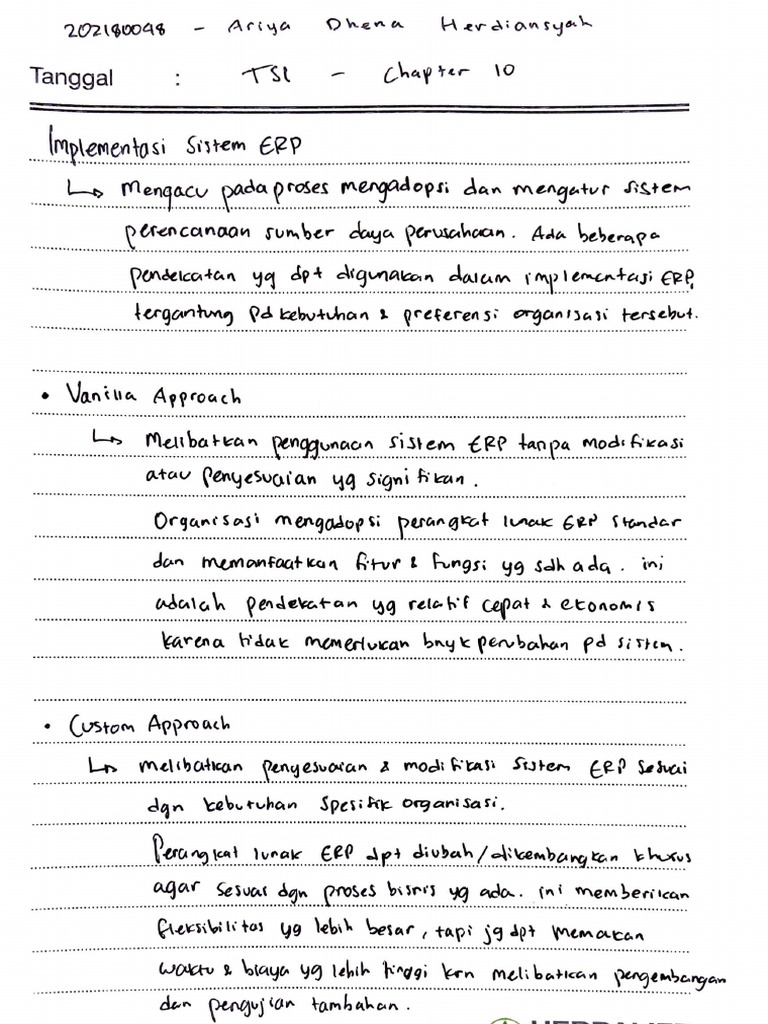 202180048 - Ariya Dhena Herdiansyah
Tanggal : TSI - Chapter 10
Implementasi Sistem ERP
↳ Mengacu pada proses mengadopsi dan mengatur sistem
perencanaan sumber daya perusahaan. Ada beberapa
pendekatan yg dpt digunakan dalam implementasi ERP,
tergantung pd kebutuhan & preferensi organisasi tersebut.
• Vanilla Approach
↳ Melibatkan penggunaan sistem ERP tanpa modifikasi
atau penyesuaian yg signifikan.
Organisasi mengadopsi perangkat lunak ERP standar
dan memanfaatkan fitur & fungsi yg sdh ada. ini
adalah pendekatan yg relatif cepat & ekonomis
karena tidak memerlukan bnyk perubahan pd sistem.
• Custom Approach
↳ Melibatkan penyesuaian & modifikasi sistem ERP sesuai
dgn kebutuhan spesifik organisasi.
Perangkat lunak ERP dpt diubah/dikembangkan khusus
agar sesuai dgn proses bisnis yg ada. ini memberikan
fleksibilitas yg lebih besar, tapi jg dpt memakan
waktu & biaya yg lebih tinggi krn melibatkan pengembangan
dan pengujian tambahan.